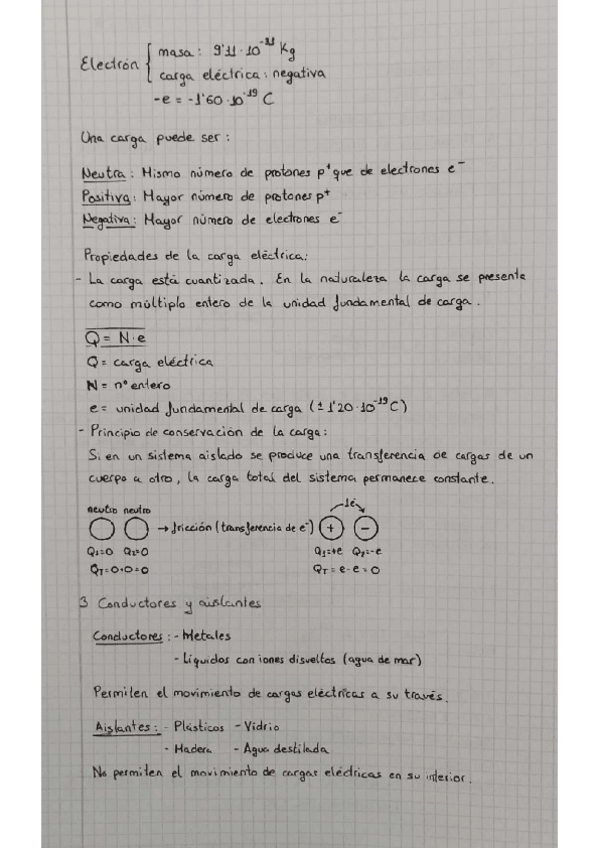 Electrón { masa: 9'11·10⁻³¹ Kg
carga eléctrica: negativa
-e = -1'60·10⁻¹⁹ C
Una carga puede ser:
Neutra: Mismo número de protones p⁺ que de electrones e⁻
Positiva: Mayor número de protones p⁺
Negativa: Mayor número de electrones e⁻
Propiedades de la carga eléctrica:
- La carga está cuantizada. En la naturaleza la carga se presenta
como múltiplo entero de la unidad fundamental de carga.
Q = N·e
Q = carga eléctrica
N = nº entero
e = unidad fundamental de carga (± 1'20·10⁻¹⁹ C)
- Principio de conservación de la carga:
Si en un sistema aislado se produce una transferencia de cargas de un
cuerpo a otro, la carga total del sistema permanece constante.
neutro neutro
→ fricción (transferencia de e⁻) + −
Q₁=0 Q₂=0 Q₁=+e Q₂=-e
Q_T=0+0=0 Q_T = e-e=0
3 Conductores y aislantes
Conductores: - Metales
- Líquidos con iones disueltos (agua de mar)
Permiten el movimiento de cargas eléctricas a su través.
Aislantes: - Plásticos - Vidrio
- Madera - Agua destilada
No permiten el movimiento de cargas eléctricas en su interior.